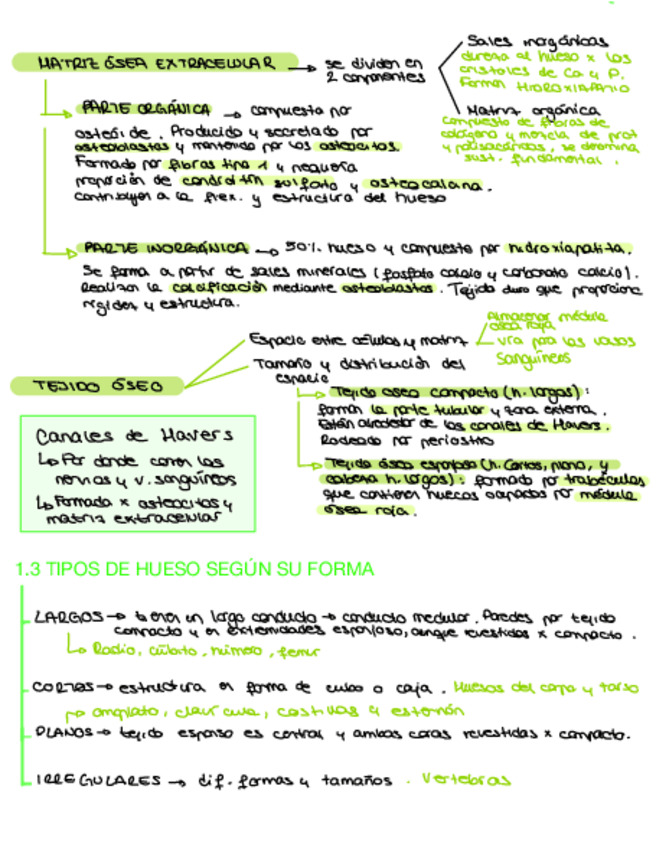 MATRIZ ÓSEA EXTRACELULAR → se dividen en
2 componentes
Sales inorgánicas
dureza al hueso x los
cristales de Ca y P.
Forman HIDROXIAPATITO
Matriz orgánica
compuesto de fibras de
colágeno y mezcla de prot
y polisacáridos, se denomina
sust. fundamental.
PARTE ORGÁNICA → compuesta por
osteóide. Producido y secretado por
osteoblastos y mantenido por los osteocitos.
Formado por fibras tipo 1 y pequeña
proporción de condroitín sulfato y osteocalcina.
contribuyen a la flex. y estructura del hueso
PARTE INORGÁNICA → 50% hueso y compuesto por hidroxiapatita.
Se forma a partir de sales minerales (fosfato calcio y carbonato calcio).
Realizan la calcificación mediante osteoblastos. Tejido duro que proporciona
rigidez y estructura.
TEJIDO ÓSEO
Espacio entre células y matriz
Almacenar médula
ósea roja
vía para los vasos
sanguíneos
Tamaño y distribución del
espacio
Tejido óseo compacto (h. largos):
forman la parte tubular y zona externa.
Están alrededor de los canales de Havers.
Rodeado por periostio
Tejido óseo esponjoso (h. cortos, plano, y
cabeza h. largos): formado por trabéculas
que contienen huecos ocupados por médula
ósea roja.
Canales de Havers
↳ Por donde corren los
nervios y v. sanguíneos
↳ Formado x osteocitos y
matriz extracelular
1.3 TIPOS DE HUESO SEGÚN SU FORMA
LARGOS → tienen un largo conducto → conducto medular. Paredes por tejido
compacto y en extremidades esponjoso, aunque revestidos x compacto.
↳ Radio, cúbito, húmero, femur
CORTOS → estructura en forma de cubo o caja. Huesos del carpo y tarso
→ omoplato, clavícula, costillas y esternón
PLANOS → tejido esponjoso es central y ambas caras revestidas x compacto.
IRREGULARES → dif. formas y tamaños. Vertebras